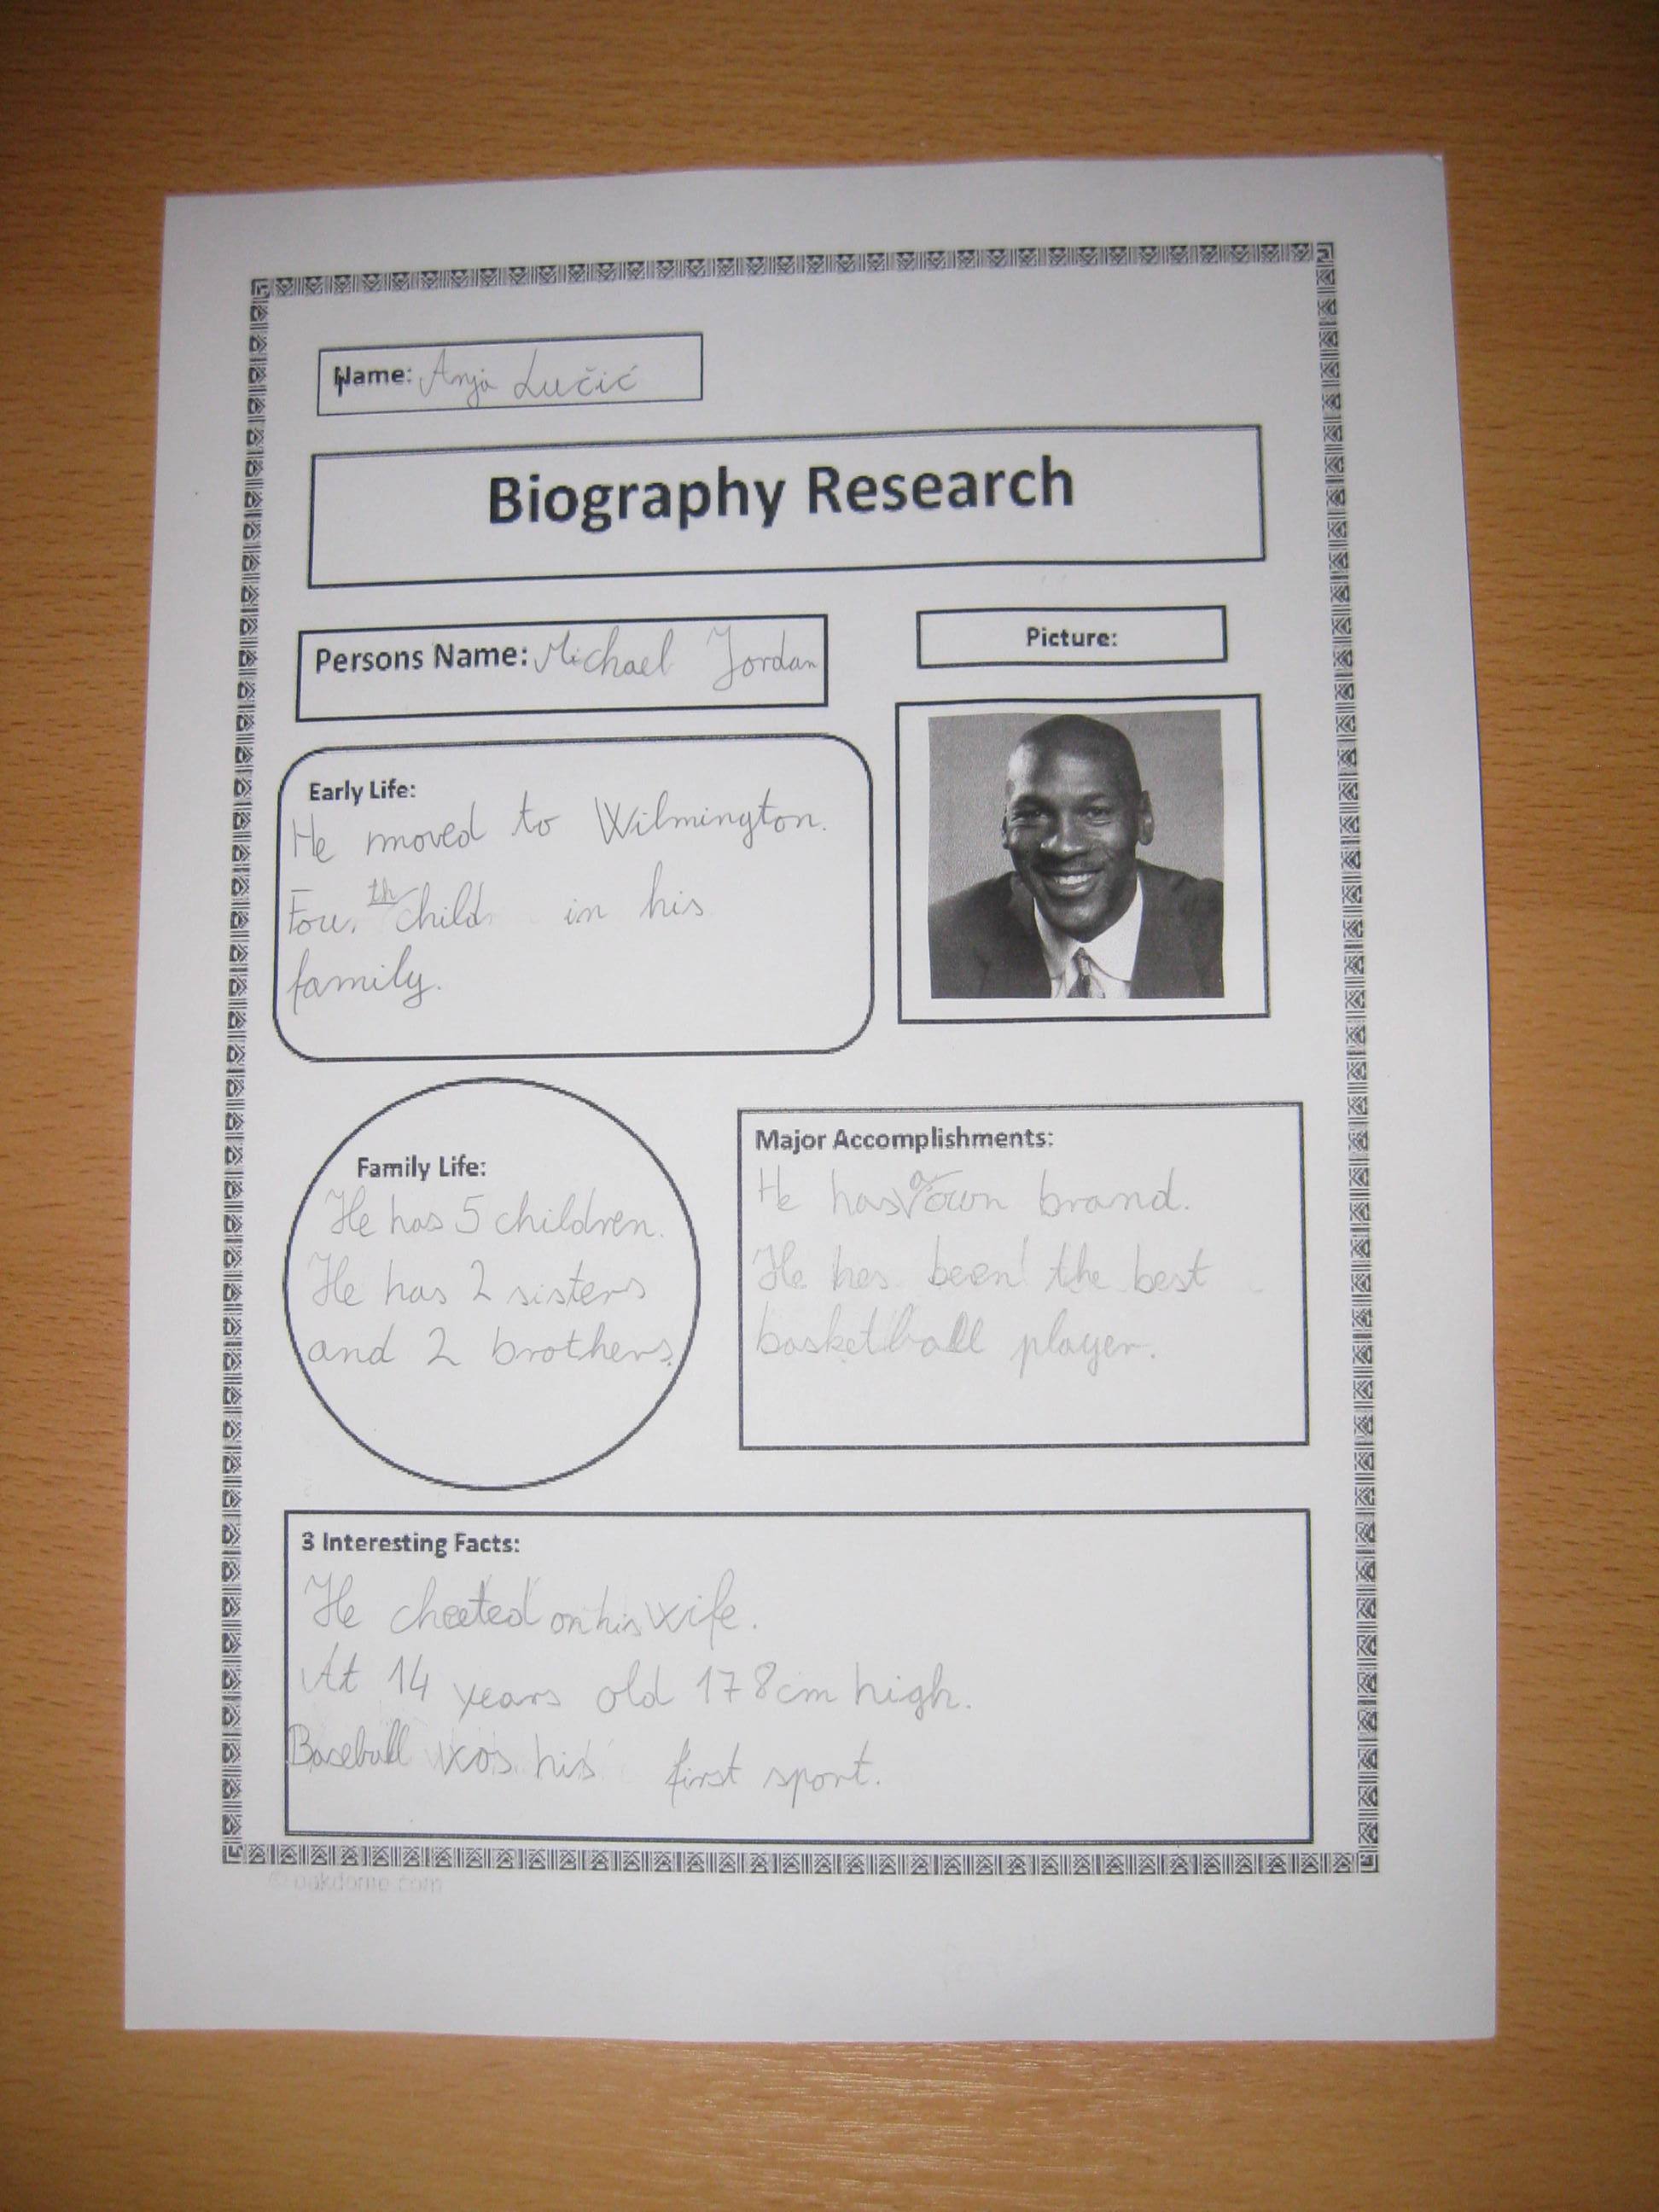 Name: Anja Lučić
Biography Research
Persons Name: Michael Jordan
Picture:
Early Life:
He moved to Wilmington.
Four th child in his
family.
Family Life:
He has 5 children.
He has 2 sisters
and 2 brothers.
Major Accomplishments:
He has a own brand.
He has been the best
basketball player.
3 Interesting Facts:
He cheeted on his wife.
At 14 years old 178cm high.
Baseball was his first sport.